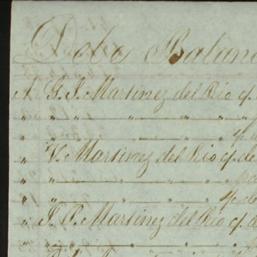 Debe Balan
A G. J. Martinez del Rio cf.
" " " " "
" " " " " pf.
" V. Martinez del Rio cf. de
" " " " "
" " " " " pf. de
" J. P. Martinez del Rio cf. d
" " " " "